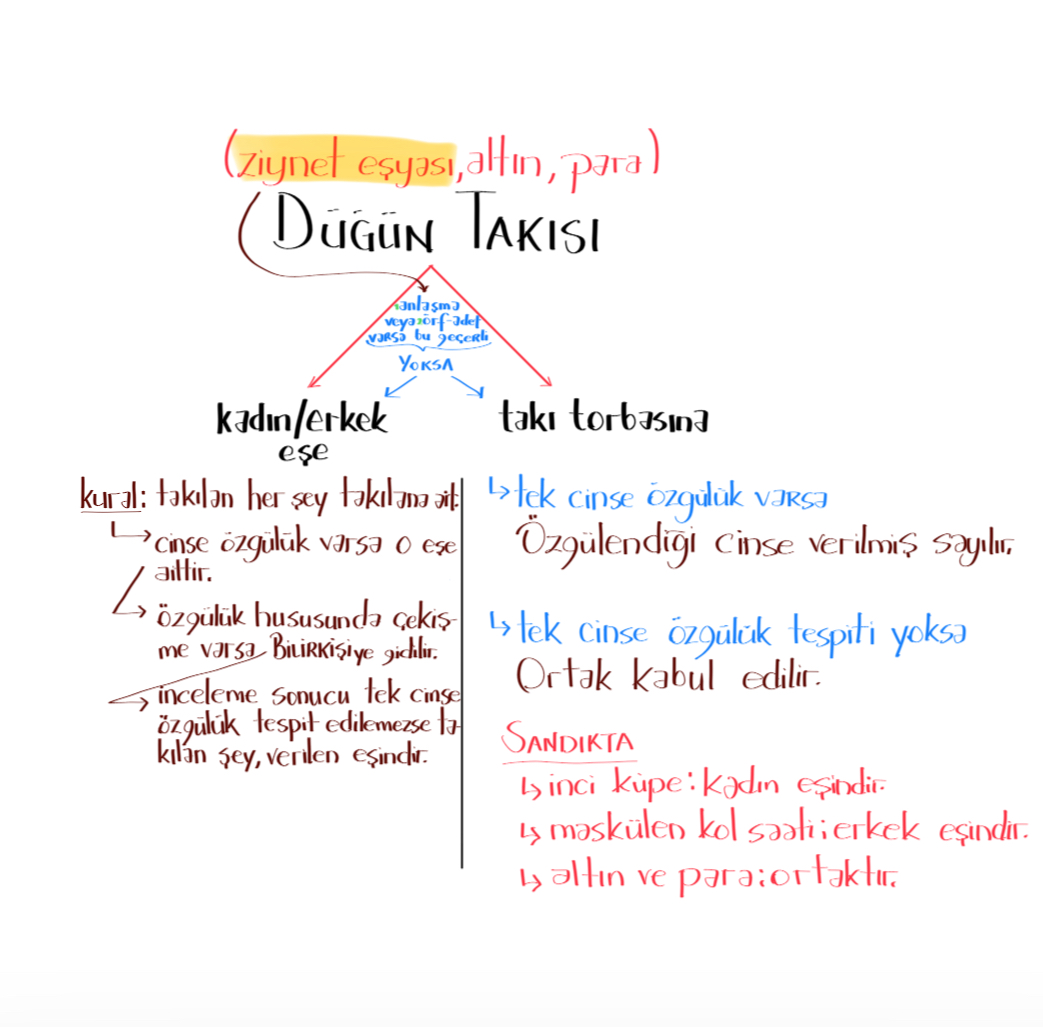 (ziynet eşyası, altın, para)
DÜĞÜN TAKISI
anlaşma
veya örf-adet
varsa bu geçerli
YOKSA
kadın/erkek
eşe
kural: takılan her şey takılana ait.
↳ cinse özgülük varsa o eşe
aittir.
↳ özgülük hususunda çekiş-
me varsa BİLİRKİŞİye gidilir.
→ inceleme sonucu tek cinse
özgülük tespit edilemezse ta-
kılan şey, verilen eşindir.
takı torbasına
↳ tek cinse özgülük varsa
Özgülendiği cinse verilmiş sayılır.
↳ tek cinse özgülük tespiti yoksa
Ortak kabul edilir.
SANDIKTA
↳ inci küpe: kadın eşindir.
↳ maskülen kol saati: erkek eşindir.
↳ altın ve para: ortaktır.